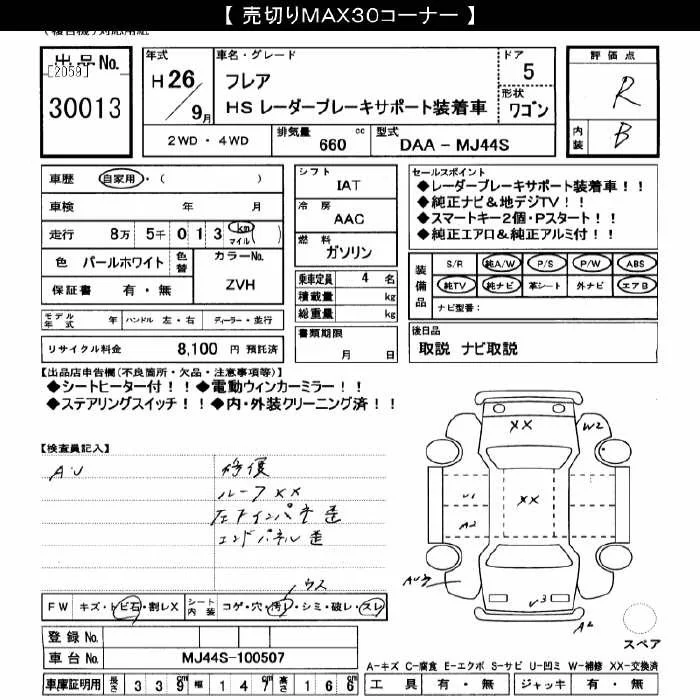 【 売切りMAX30コーナー 】
出品No.
[2059]
30013
年式
H26/9月
車名・グレード
フレア
HS レーダーブレーキサポート装着車
ドア
5
形状
ワゴン
評価点
R
内装
B
2WD ・ 4WD
排気量
660 cc
型式
DAA - MJ44S
車歴 自家用・( )
車検 年 月
走行 8万 5千 0 1 3 km マイル ( )
色 パールホワイト
色替
カラーNo.
ZVH
保証書 有・無
モデル年式 年
ハンドル 左・右
ディーラー・並行
リサイクル料金 8,100 円 預託済
シフト
IAT
冷房
AAC
燃料
ガソリン
乗車定員 4 名
積載量 kg
総重量 kg
書類期限
月 日
セールスポイント
◆レーダーブレーキサポート装着車！！
◆純正ナビ&地デジTV！！
◆スマートキー2個・Pスタート！！
◆純正エアロ&純正アルミ付！！
装備品
S/R 純A/W P/S P/W ABS
純TV 純ナビ 革シート 外ナビ エアB
ナビ型番：
後日品
取説 ナビ取説
【出品店申告欄(不良箇所・欠品・注意事項等)】
◆シートヒーター付！！◆電動ウィンカーミラー！！
◆ステアリングスイッチ！！◆内・外装クリーニング済！！
【検査員記入】
AU
修復
ルーフXX
エンドパネル歪
XX
W2
U1
XX
A2
AU3
U3
A2
スペア
ウス
FW キズ・トビ石・割レX
シート内装 コゲ・穴・汚レ・シミ・破レ・スレ
登録 No.
車台 No. MJ44S-100507
車庫証明用 長さ 3 3 9 cm 幅 1 4 7 cm 高さ 1 6 6 cm
A-キズ C-腐食 E-エクボ S-サビ U-凹ミ W-補修 XX-交換済
工具 有・無 ジャッキ 有・無